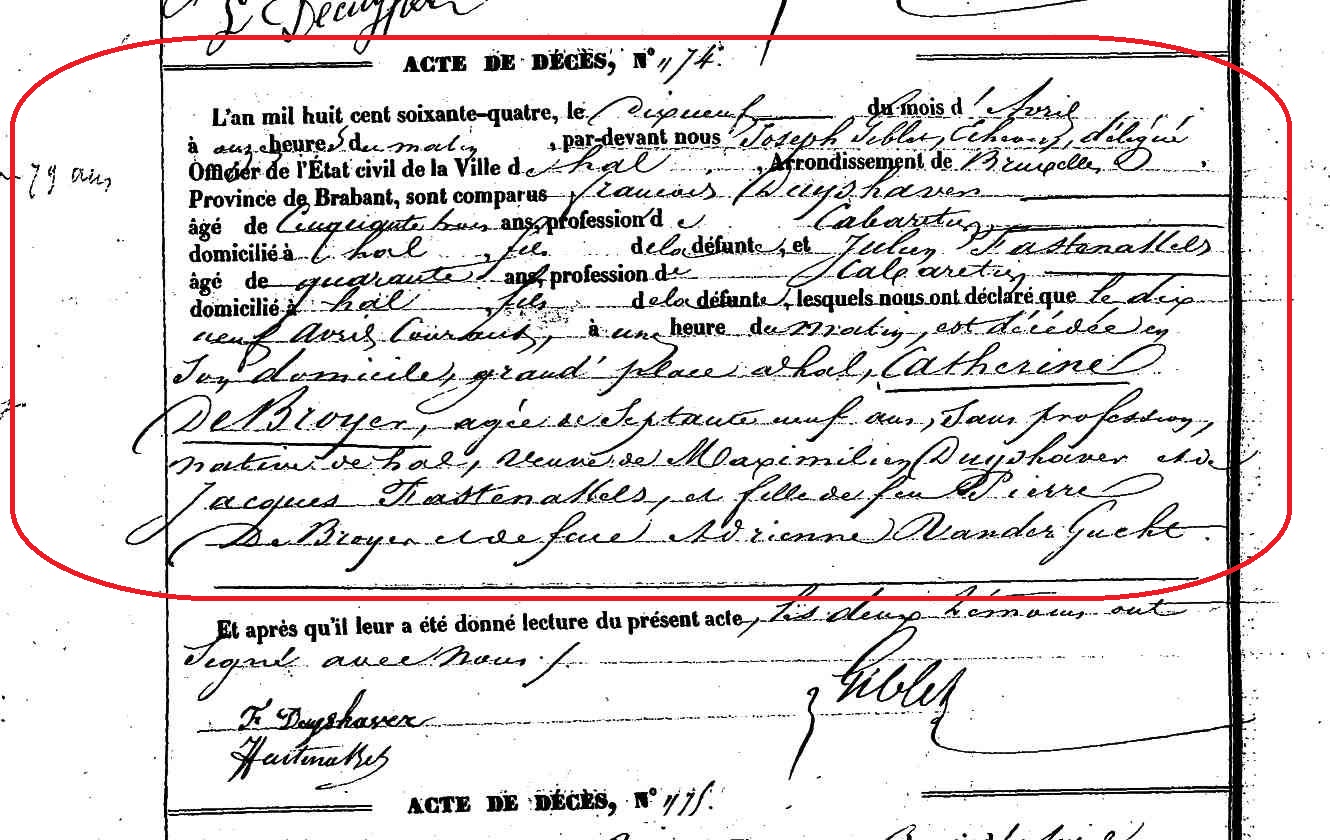 ACTE DE DÉCÈS, N° 174.
L'an mil huit cent soixante-quatre, le dixneuf du mois d' Avril
à onze heures du matin, par-devant nous Joseph Giblet, Echevin, délégué
Officier de l'État civil de la Ville de hal, Arrondissement de Bruxelles,
79 ans
Province de Brabant, sont comparus francois Duyshaver
âgé de Cinquante trois ans, profession de Cabaretier
domicilié à hal, fils de la défunte, et Julien Fastenakels
âgé de quarante ans, profession de Cabaretier
domicilié à hal, fils de la défunte, lesquels nous ont déclaré que le dix
neuf Avril Courant, à une heure du matin, est décédée en
Son domicile, grand' place a hal, Catherine
De Broyer, agée de Septante neuf ans, Sans profession,
native de hal, Veuve de Maximilien Duyshaver et de
Jacques Fastenakels, et fille de feu Pierre
De Broyer et de feue Adrienne Vander Gucht.
Et après qu'il leur a été donné lecture du présent acte, les deux témoins ont
Signé avec Nous ./
Giblet
F. Duyshaver
Fastenakels
ACTE DE DÉCÈS, N° 175.